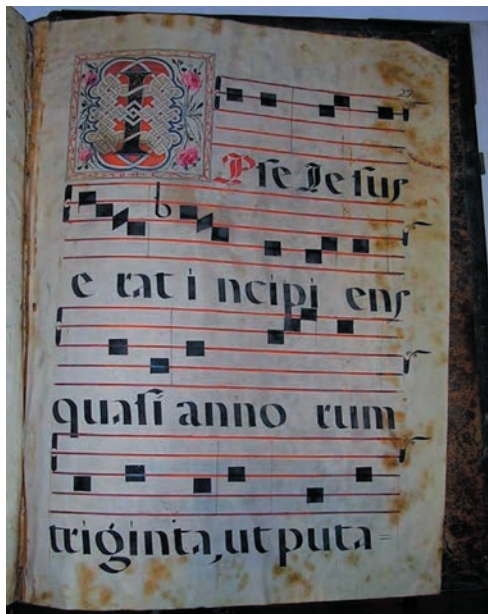 27
IPse Jesus
e rat i ncipi ens
quasi anno rum
triginta, ut puta=